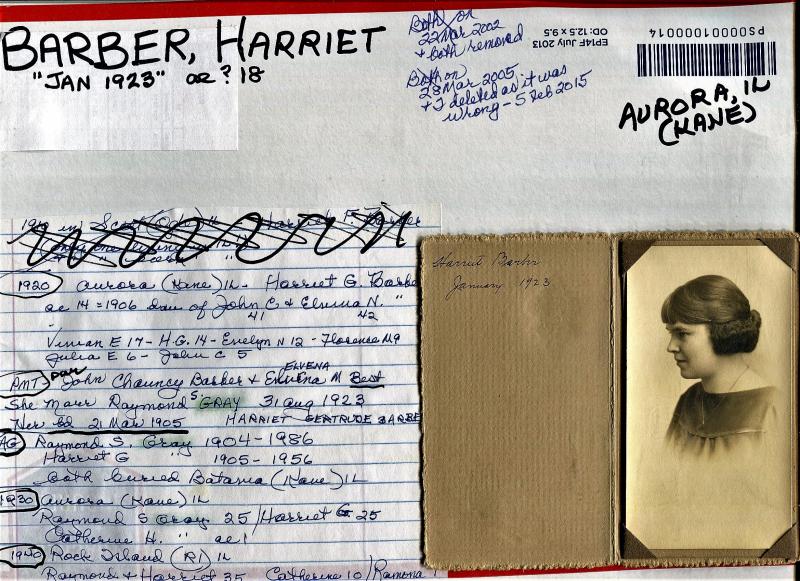 BARBER, HARRIET
"JAN 1923" or ? 18
Both on
22 Mar 2002
+ both removed
Both on
28 Mar 2005
+ I deleted as it was
wrong - 5 Feb 2015
EP14F July 2013
OD: 12.5 x 9.5
PS00001000014
AURORA, IL
(KANE)
1920 Aurora (Kane) IL - Harriet G. Barbe
ae 14 = 1906 dau of John C & Elmina N. "
41 42
Vivian E 17 - H.G. 14 - Evelyn N 12 - Florence M 9
Julia E 6 - John C 5
ELVENA
PMT - dau John Chauncy Barber & Elvena M Best
She Marr Raymond S GRAY 31 Aug 1923
Her bd 21 Mar 1905 HARRIET GERTRUDE BARBE
AG Raymond S. Gray 1904 - 1986
Harriet G 1905 - 1956
both buried Batavia (Kane) IL
1930 Aurora (Kane) IL
Raymond S Gray 25 / Harriet G. 25
Catherine H. " ae 1
1940 Rock Island (RI) IL
Raymond + Harriet 35 Catherine 10 / Ramona 1
Harriet Barber
January 1923